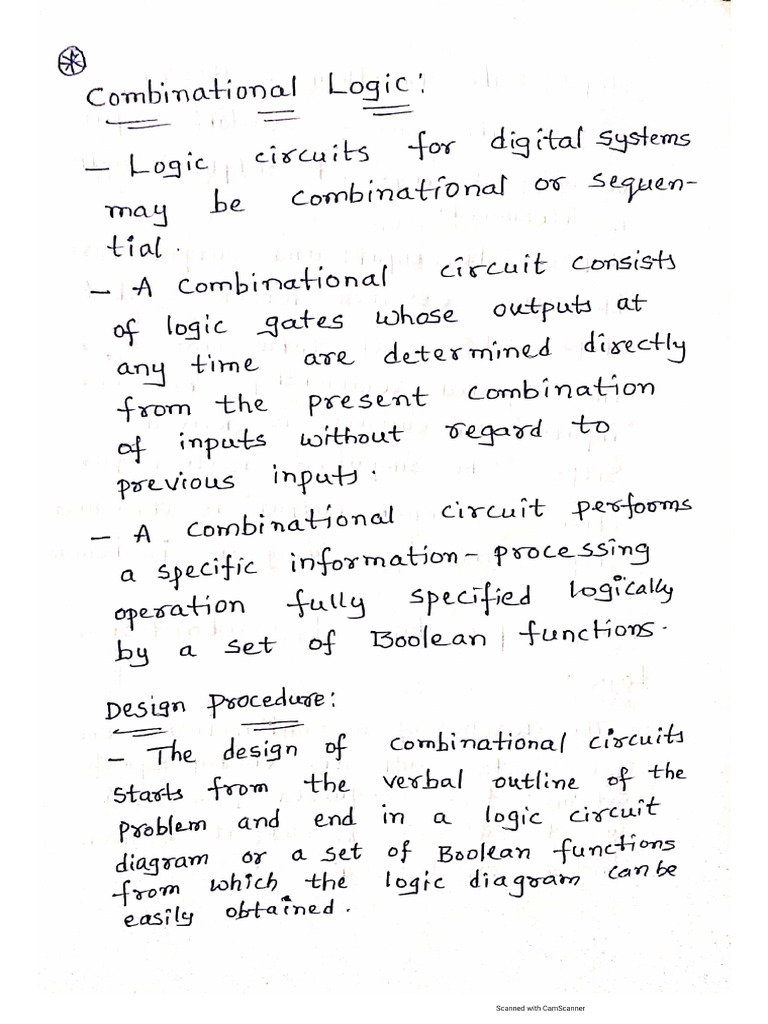 Combinational Logic:
- Logic circuits for digital systems
may be combinational or sequen-
tial.
- A combinational circuit consists
of logic gates whose outputs at
any time are determined directly
from the present combination
of inputs without regard to
previous inputs.
- A combinational circuit performs
a specific information-processing
operation fully specified logically
by a set of Boolean functions.
Design Procedure:
- The design of combinational circuits
starts from the verbal outline of the
problem and end in a logic circuit
diagram or a set of Boolean functions
from which the logic diagram can be
easily obtained.
Scanned with CamScanner